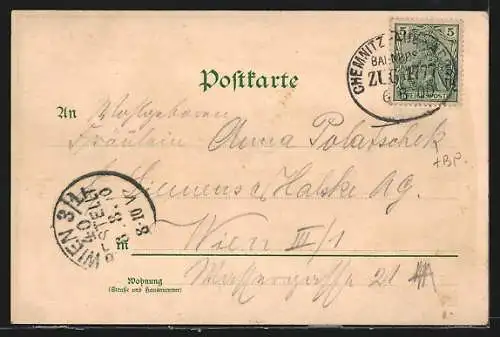 5 5
CHEMNITZ
BAHNPOST
ZUG
Postkarte
An Wohlgeboren
Fräulein Anna Polatschek
+BP.
Siemens & Halske AG.
WIEN 3/1
BESTELLT
in Wien III/1
21
Wohnung
(Straße und Hausnummer)